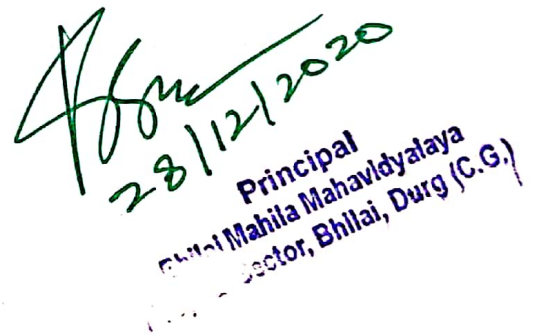 28/12/2020
Principal
Bhilai Mahila Mahavidyalaya
Sector, Bhilai, Durg (C.G.)